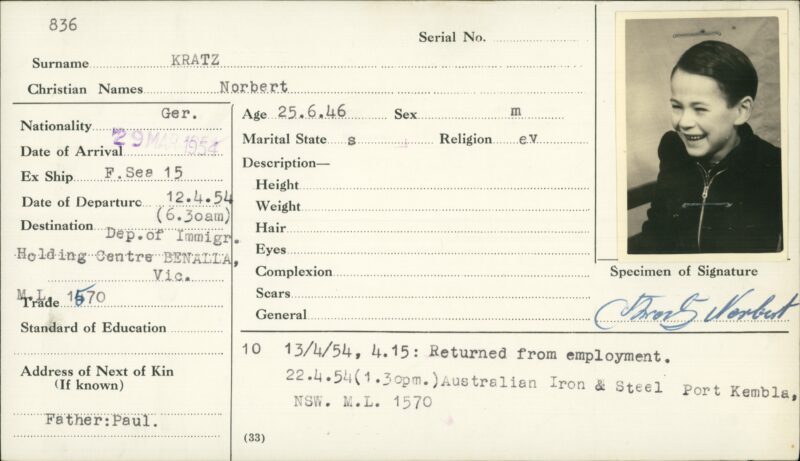 836
Serial No.
Surname KRATZ
Christian Names Norbert
Nationality Ger.
Date of Arrival 29 MAR 1954
Ex Ship F.Sea 15
Date of Departure 12.4.54
(6.30am)
Destination Dep.of Immigr.
Holding Centre BENALLA,
Vic.
M.L. 1570
Trade
Standard of Education
Address of Next of Kin
(If known)
Father:Paul.
Age 25.6.46 Sex m
Marital State s Religion ev
Description—
Height
Weight
Hair
Eyes
Complexion
Scars
General
Specimen of Signature
Kratz Norbert
10 13/4/54, 4.15: Returned from employment.
22.4.54(1.30pm.)Australian Iron & Steel Port Kembla,
NSW. M.L. 1570
(33)